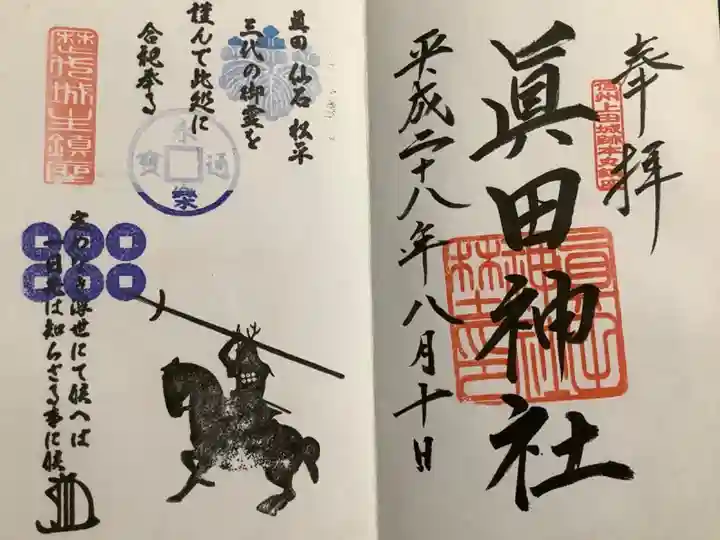 奉拝
信州上田城跡本丸鎮座
眞田神社
平成二十八年八月十日
眞田 仙石 松平
三代の御霊を
謹んで此処に
合祀奉る
永樂通寳
定めなき浮世にて候へば
一日先は知らざる事に候